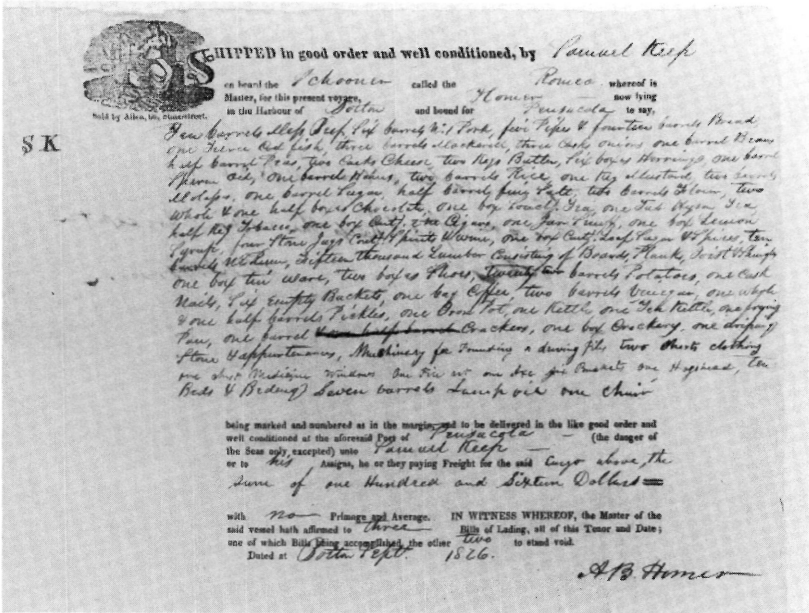 SHIPPED in good order and well conditioned, by Samuel Keep
on board the Schooner called the Romeo whereof is
Master, for this present voyage, Homer now lying
in the Harbour of Boston and bound for Pensacola to say,
Sold by Allen,
S K
Ten barrels Mess Beef, Six barrels No 1 Pork, five Pipes & fourteen barrels Bread
one Tierce Cod fish, three barrels Mackerel, three Casks onions one barrel Beans
half barrel Peas, two Casks Cheese, two Kegs Butter, Six boxes Herrings, one barrel
Oil, one barrel Hams, two barrels Rice, one Keg Mustard, two barrels
Molass, one barrel Sugar, half barrel fine Salt, ten barrels Flour, two
whole & one half boxes Chocolate, one box Tea, one Tub Hyson Tea
half Keg Tobacco, one box Cigars, one box Lemon
Syrup, four Stone Jugs Spirits & Wine, one box Loaf Sugar & Spices, ten
barrels, Sixteen thousand Lumber Consisting of Boards, Plank, Joist & Shingles
one box tin ware, two boxes Shoes, barrels Potatoes, one Cask
Nails, Six Empty Buckets, one bag Coffee, two barrels Vinegar, one whole
& one half barrels Pickles, one Iron Pot, one Kettle, one Tea Kettle, one frying
Pan, one barrel Crackers, one box Crockery, one
Stove & appurtenances, Machinery for & driving piles two Chests clothing
one Medicine Windows one one Hogshead, ten
Beds & Beding Seven barrels Lamp oil one Chair
being marked and numbered as in the margin, and to be delivered in the like good order and
well conditioned at the aforesaid Port of Pensacola (the danger of
the Seas only excepted) unto Samuel Keep
or to his Assigns, he or they paying Freight for the said Cargo above, the
sum of one Hundred and Sixteen Dollars
with no Primage and Average. IN WITNESS WHEREOF, the Master of the
said vessel hath affirmed to three Bills of Lading, all of this Tenor and Date;
one of which Bills being accomplished, the other two to stand void.
Dated at Boston Sept. 1826.
A B Homer